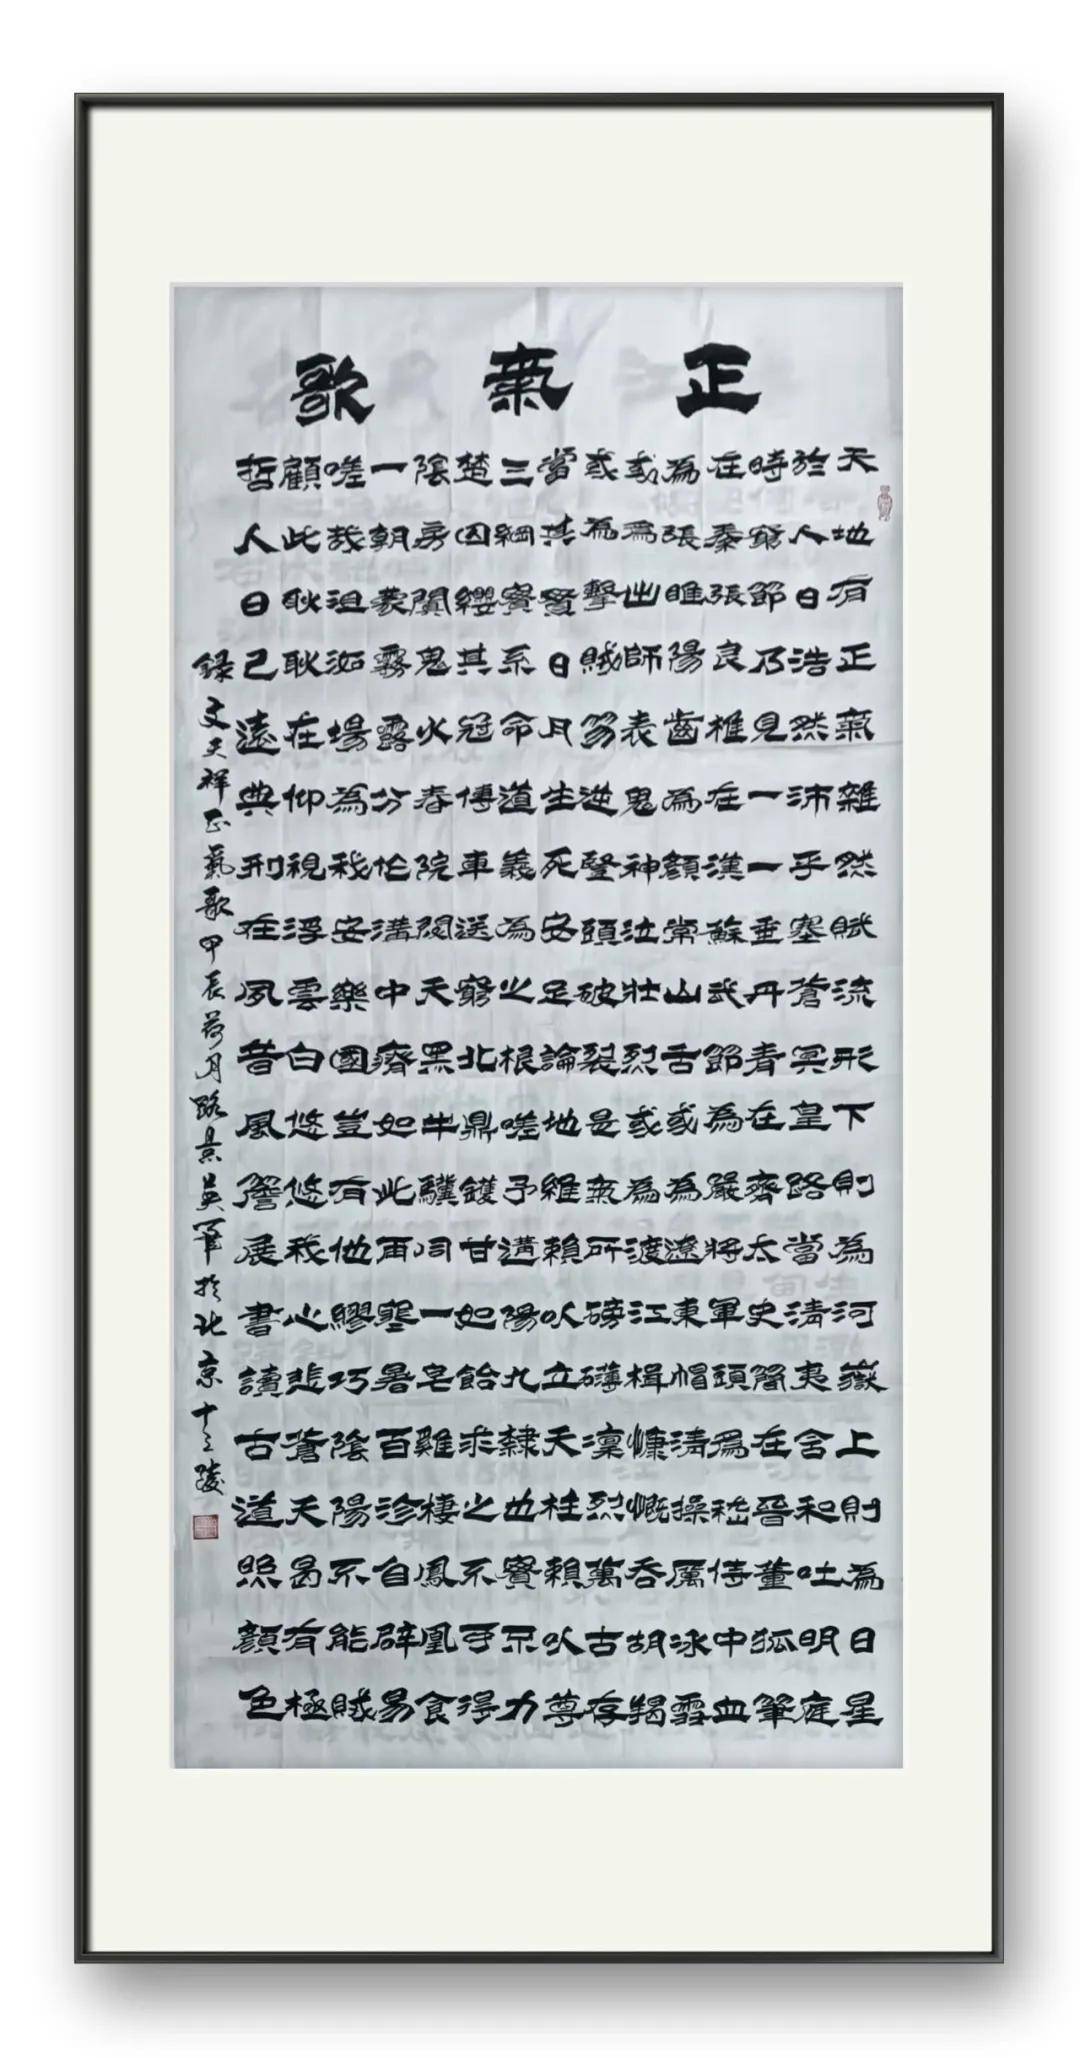 正氣歌
天地有正氣雜然賦流形下則為河嶽上則為日星
於人日浩然沛乎塞蒼冥皇路當清夷含和吐明庭
時窮節乃見一一垂丹青在齊太史簡在晉董狐筆
在秦張良椎在漢蘇武節為嚴將軍頭為嵇侍中血
為張睢陽齒為顏常山舌或為遼東帽清操厲冰雪
或為出師表鬼神泣壯烈或為渡江楫慷慨吞胡羯
或為擊賊笏逆豎頭破裂是氣所磅礴凜烈萬古存
當其賢日月生死安足論地維賴以立天柱賴以尊
三綱實系命道義為之根嗟予遘陽九隸也實不力
楚囚纓其冠傳車送窮北鼎鑊甘如飴求之不可得
陰房闃鬼火春院閟天黑牛驥同一皂雞棲鳳凰食
一朝蒙霧露分作溝中瘠如此再寒暑百沴自辟易
嗟哉沮洳場為我安樂國豈有他繆巧陰陽不能賊
顧此耿耿在仰視浮雲白悠悠我心悲蒼天曷有極
哲人日已遠典刑在夙昔風簷展書讀古道照顏色
錄文天祥正氣歌甲辰荷月路景英筆於北京十三陵